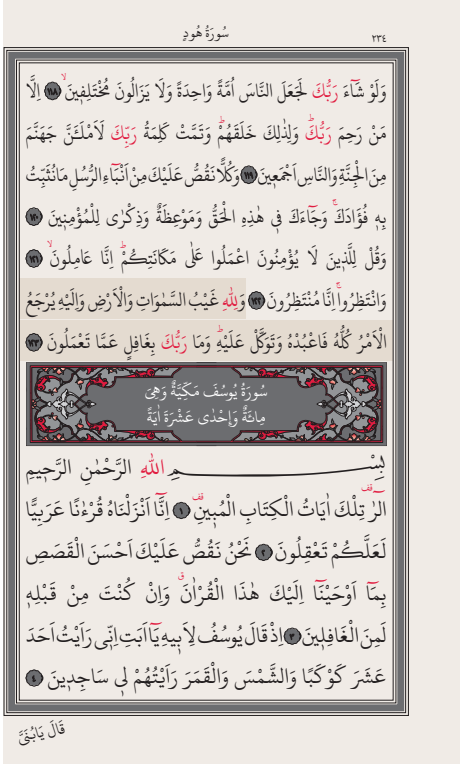 سُورَةُ هُودٍ
٢٣٤
وَلَوْ شَٓاءَ رَبُّكَ لَجَعَلَ النَّاسَ اُمَّةً وَاحِدَةً وَلَا يَزَالُونَ مُخْتَلِفٖينَۙ ﴿١١٨﴾ اِلَّا
مَنْ رَحِمَ رَبُّكَۜ وَلِذٰلِكَ خَلَقَهُمْۜ وَتَمَّتْ كَلِمَةُ رَبِّكَ لَاَمْلَـَٔنَّ جَهَنَّمَ
مِنَ الْجِنَّةِ وَالنَّاسِ اَجْمَعٖينَ ﴿١١٩﴾ وَكُلًّا نَقُصُّ عَلَيْكَ مِنْ اَنْبَٓاءِ الرُّسُلِ مَا نُثَبِّتُ
بِهٖ فُؤٰادَكَۚ وَجَٓاءَكَ فٖى هٰذِهِ الْحَقُّ وَمَوْعِظَةٌ وَذِكْرٰى لِلْمُؤْمِنٖينَ ﴿١٢٠﴾
وَقُلْ لِلَّذٖينَ لَا يُؤْمِنُونَ اعْمَلُوا عَلٰى مَكَانَتِكُمْۜ اِنَّا عَامِلُونَۙ ﴿١٢١﴾
وَانْتَظِرُواۚ اِنَّا مُنْتَظِرُونَ ﴿١٢٢﴾ وَلِلّٰهِ غَيْبُ السَّمٰوَاتِ وَالْاَرْضِ وَاِلَيْهِ يُرْجَعُ
الْاَمْرُ كُلُّهُ فَاعْبُدْهُ وَتَوَكَّلْ عَلَيْهِۜ وَمَا رَبُّكَ بِغَافِلٍ عَمَّا تَعْمَلُونَ ﴿١٢٣﴾
سُورَةُ يُوسُفَ مَكِّيَّةٌ وَهِىَ
مِائَةٌ وَاِحْدٰى عَشْرَةَ اٰيَةً
بِسْمِ اللّٰهِ الرَّحْمٰنِ الرَّحٖيمِ
الٓرٰ تِلْكَ اٰيَاتُ الْكِتَابِ الْمُبٖينِ ﴿١﴾ اِنَّٓا اَنْزَلْنَاهُ قُرْءٰنًا عَرَبِيًّا
لَعَلَّكُمْ تَعْقِلُونَ ﴿٢﴾ نَحْنُ نَقُصُّ عَلَيْكَ اَحْسَنَ الْقَصَصِ
بِمَٓا اَوْحَيْنَٓا اِلَيْكَ هٰذَا الْقُرْاٰنَۗ وَاِنْ كُنْتَ مِنْ قَبْلِهٖ
لَمِنَ الْغَافِلٖينَ ﴿٣﴾ اِذْ قَالَ يُوسُفُ لِاَبٖيهِ يَٓا اَبَتِ اِنّٖى رَاَيْتُ اَحَدَ
عَشَرَ كَوْكَبًا وَالشَّمْسَ وَالْقَمَرَ رَاَيْتُهُمْ لٖى سَاجِدٖينَ ﴿٤﴾
قَالَ يَابُنَىَّ